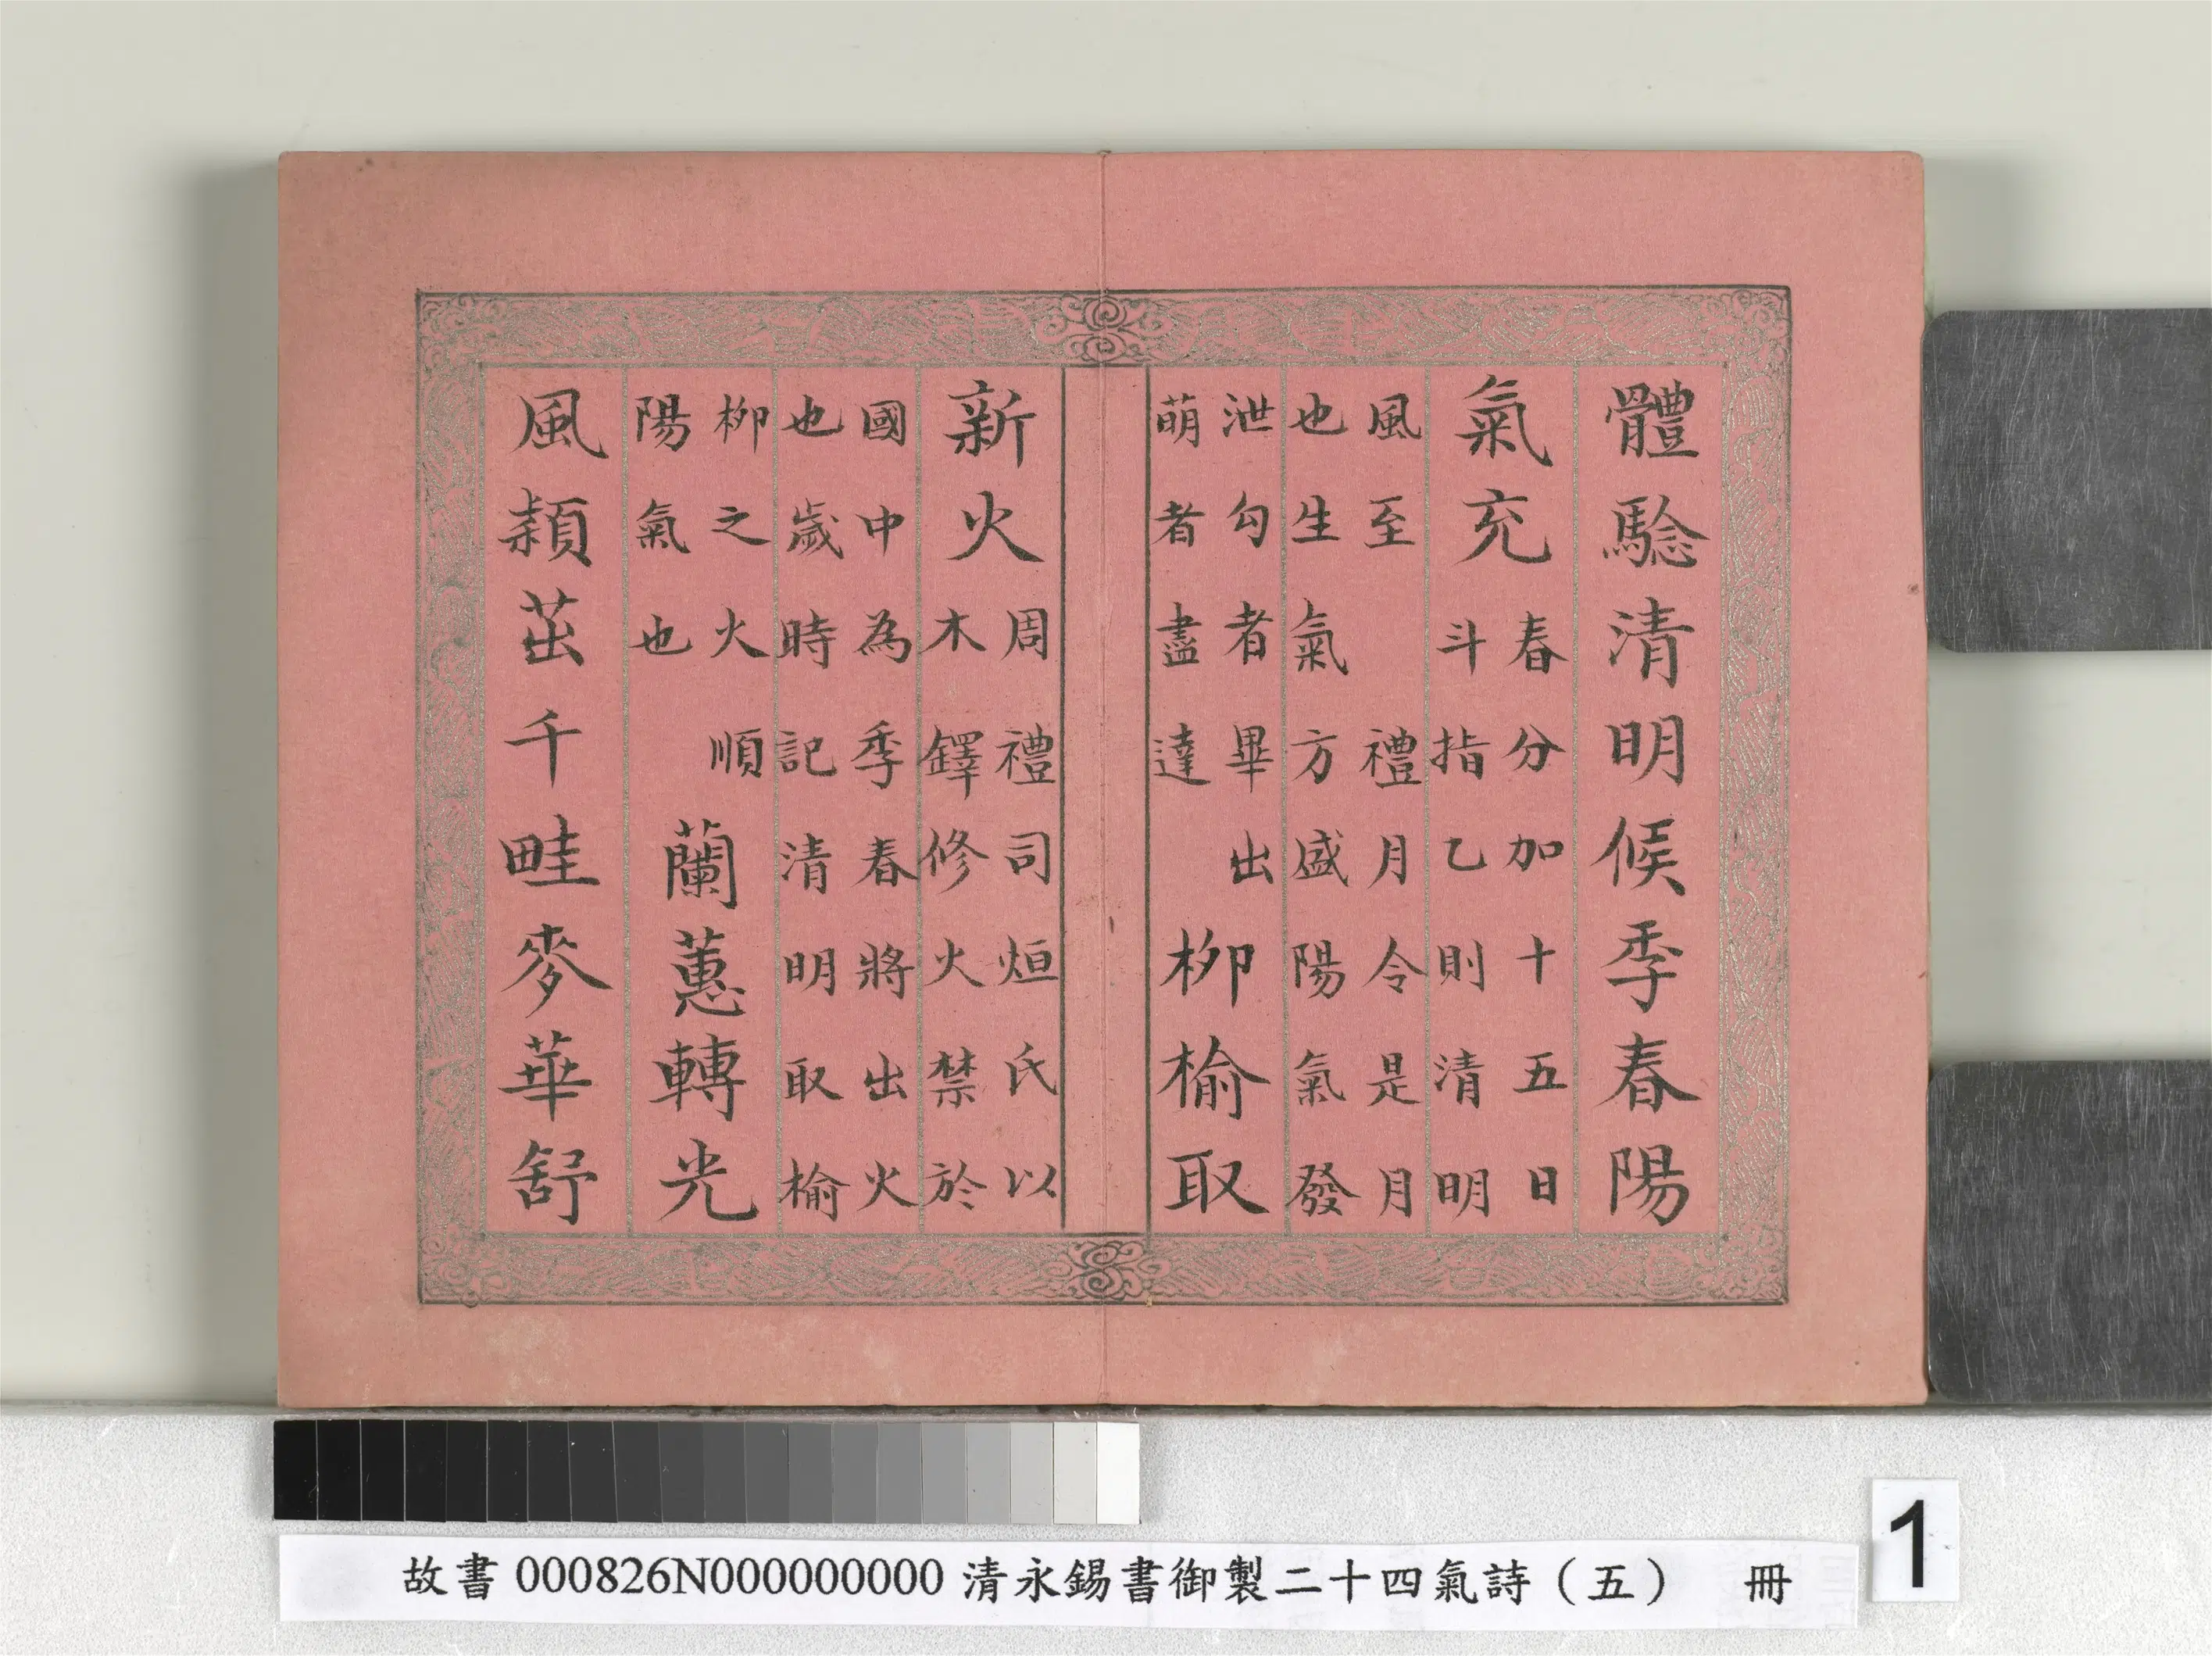 體騐清明候季春陽
氣充
春分加十五日
斗指乙則清明
風至 禮月令是月
也生氣方盛陽氣發
泄勾者畢出
萌者盡達
柳榆取
新火
周禮司烜氏以
木鐸修火禁於
國中為季春將出火
也歲時記清明取榆
柳之火順
陽氣也
蘭蕙轉光
風頴茁千畦麥華舒
故書000826N000000000 清永錫書御製二十四氣詩（五） 冊
1